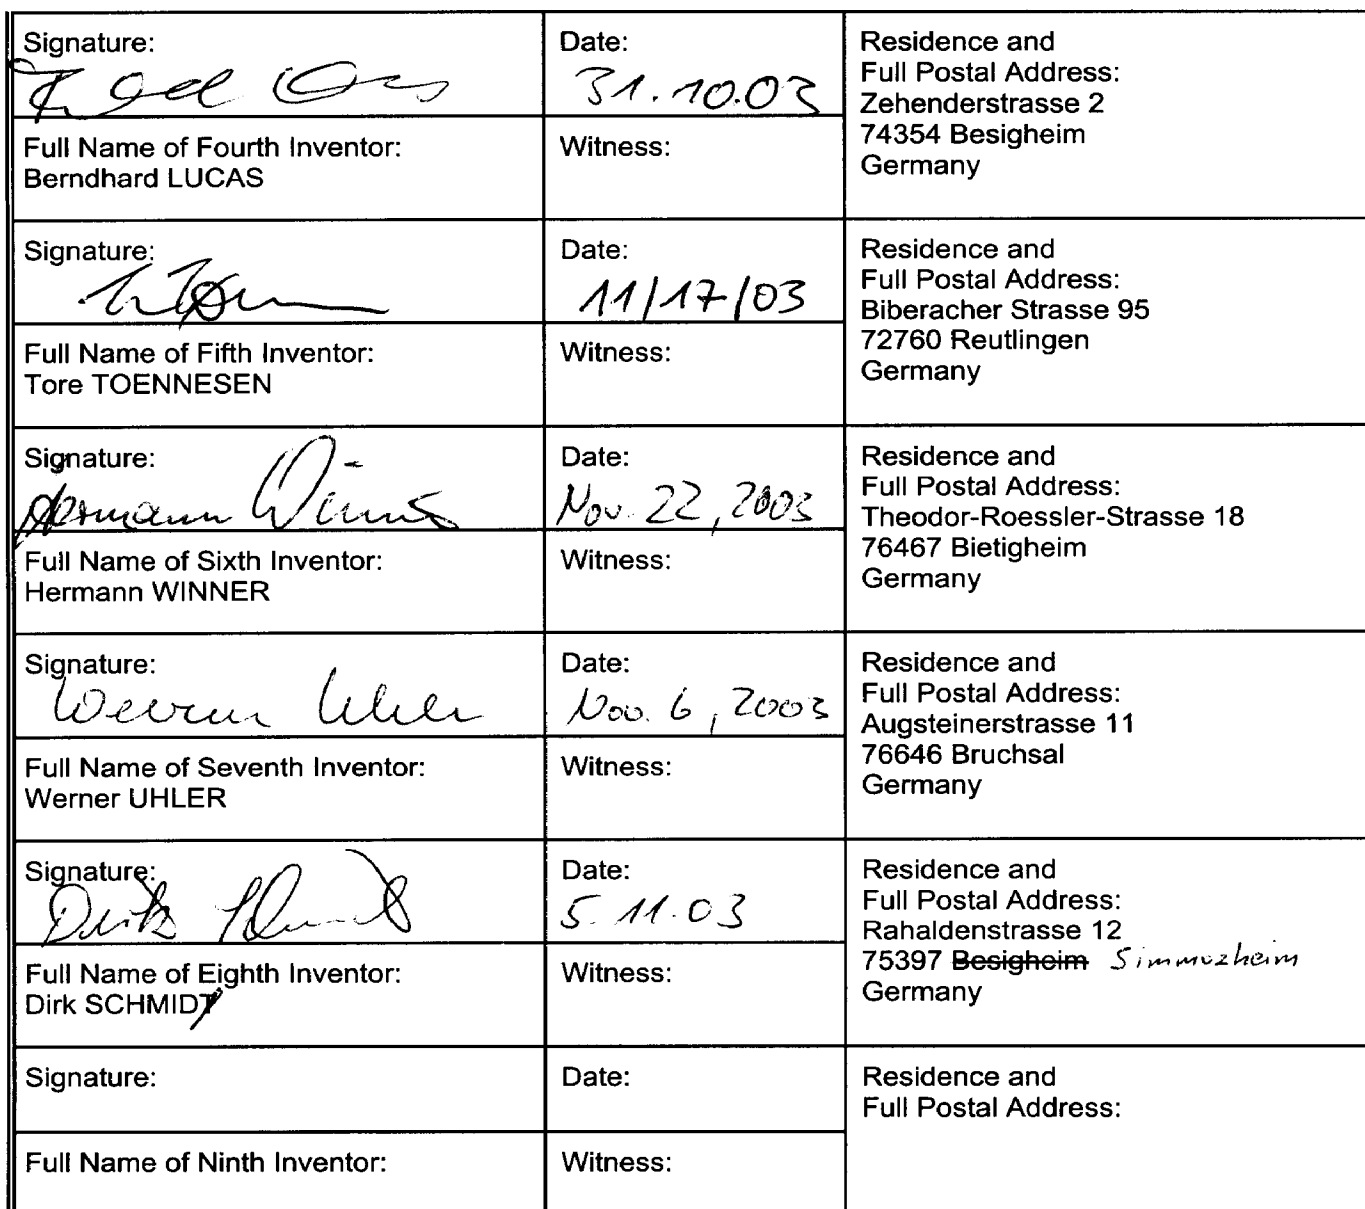 Signature:
Date:
31.10.03
Residence and
Full Postal Address:
Zehenderstrasse 2
74354 Besigheim
Germany
Full Name of Fourth Inventor:
Berndhard LUCAS
Witness:
Signature:
Date:
11/17/03
Residence and
Full Postal Address:
Biberacher Strasse 95
72760 Reutlingen
Germany
Full Name of Fifth Inventor:
Tore TOENNESEN
Witness:
Signature:
Hermann Winner
Date:
Nov. 22, 2003
Residence and
Full Postal Address:
Theodor-Roessler-Strasse 18
76467 Bietigheim
Germany
Full Name of Sixth Inventor:
Hermann WINNER
Witness:
Signature:
Werner Uhler
Date:
Nov. 6, 2003
Residence and
Full Postal Address:
Augsteinerstrasse 11
76646 Bruchsal
Germany
Full Name of Seventh Inventor:
Werner UHLER
Witness:
Signature:
Dirk Schmidt
Date:
5.11.03
Residence and
Full Postal Address:
Rahaldenstrasse 12
75397 Besigheim Simmozheim
Germany
Full Name of Eighth Inventor:
Dirk SCHMIDT
Witness:
Signature:
Date:
Residence and
Full Postal Address:
Full Name of Ninth Inventor:
Witness: